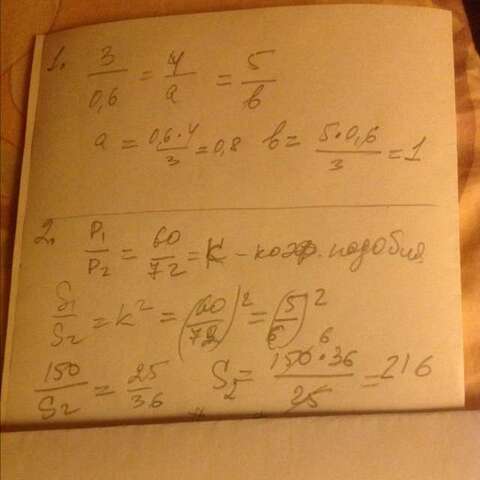 1. 3/0,6 = 4/a = 5/b
a = 0,6·4/3 = 0,8 b = 5·0,6/3 = 1
2. P₁/P₂ = 60/72 = k - коэф. подобия
S₁/S₂ = k² = (60/72)² = (5/6)²
150/S₂ = 25/36 S₂ = 150·36/25 = 216